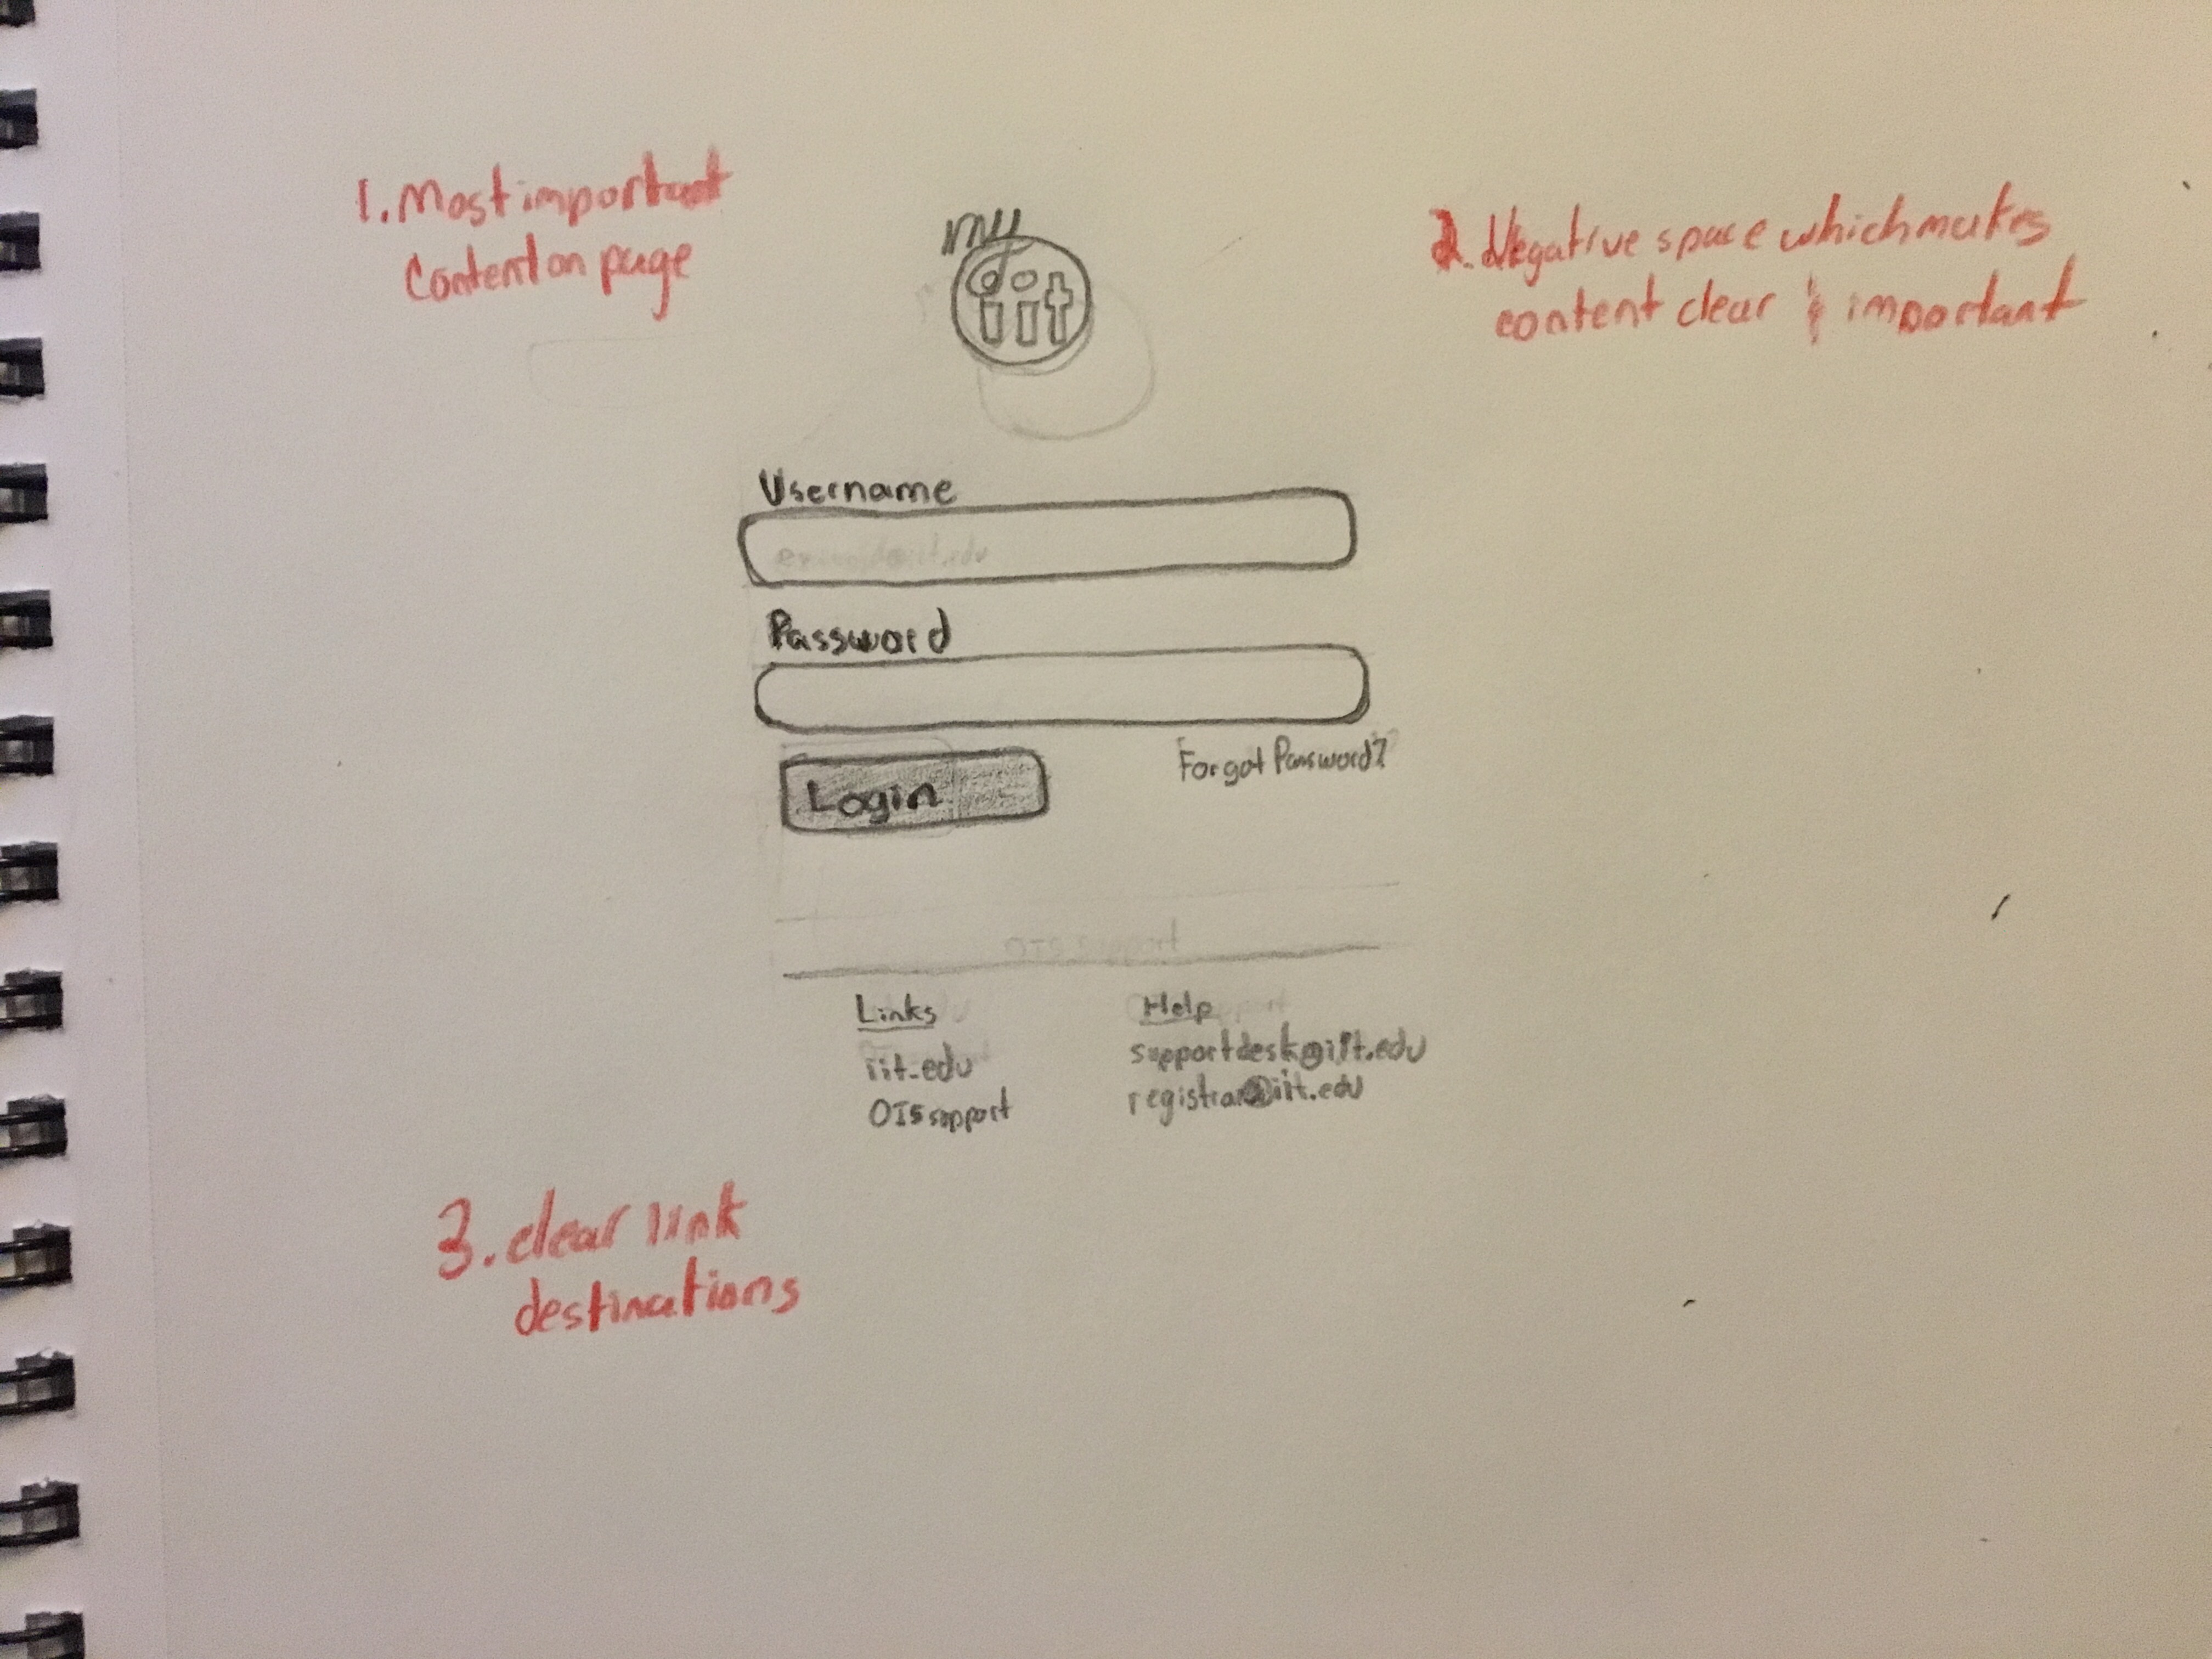 1. Most important
Content on page
my
iit
2. Negative space which makes
content clear & important
Username
Password
Login
Forgot Password?
OTS support
Links
iit.edu
OTS support
Help
supportdesk@iit.edu
registrar@iit.edu
3. clear link
destinations